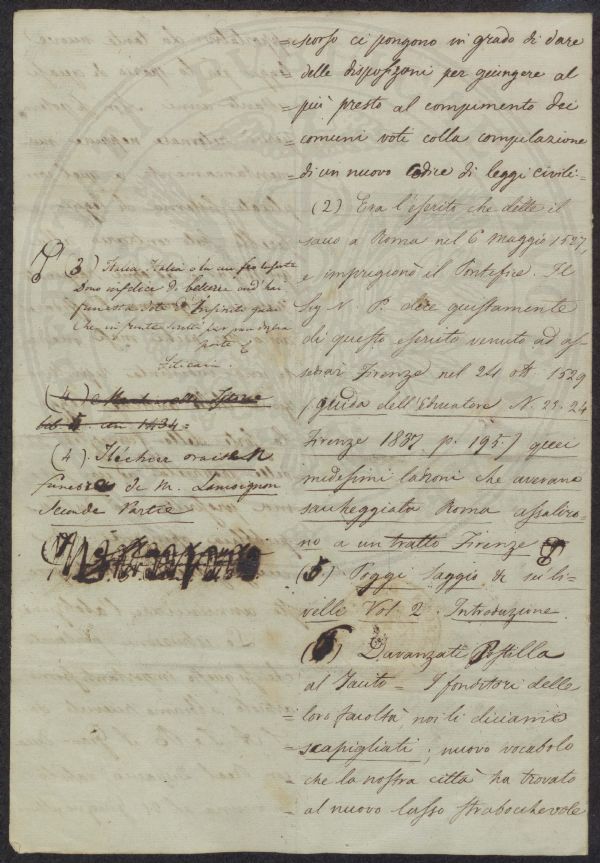 =scorso ci pongono in grado di dare
delle disposizioni per giungere al
= più presto al compimento dei
= comuni voti colla compilazione
= di un nuovo Codice di leggi civili=
(2) Era l'esercito che dette il
sacco a Roma nel 6 Maggio 1527,
e imprigionò il Pontefice. Il
Sig N. P. dice giustamente
di questo esercito venuto ad as-
sediar Firenze nel 24 ott 1529
(guida dell'Educatore N. 23. 24
Firenze 1837. p. 195) quei
medesimi ladroni che avevano
saccheggiata Roma assaliro-
no a un tratto Firenze
(5) Poggi Saggio di sui li-
velli Vol. 2. Introduzione
(6) Davanzati Postilla
al Tacito = I fonditori delle
= loro facoltà noi li diciamo
= scapigliati; nuovo vocabolo
= che la nostra città ha trovato
= al nuovo lusso strabocchevole
(3) Italia, Italia o tu cui feo la sorte
Dono infelice di bellezza ond'hai
funesta dote d'infiniti guai
Che in fronte scritti per gran doglia
porte
Filicaia
(4)
1434=
(4). Fléchier oraison
funebre de M. Lamoignon
Seconde Partie